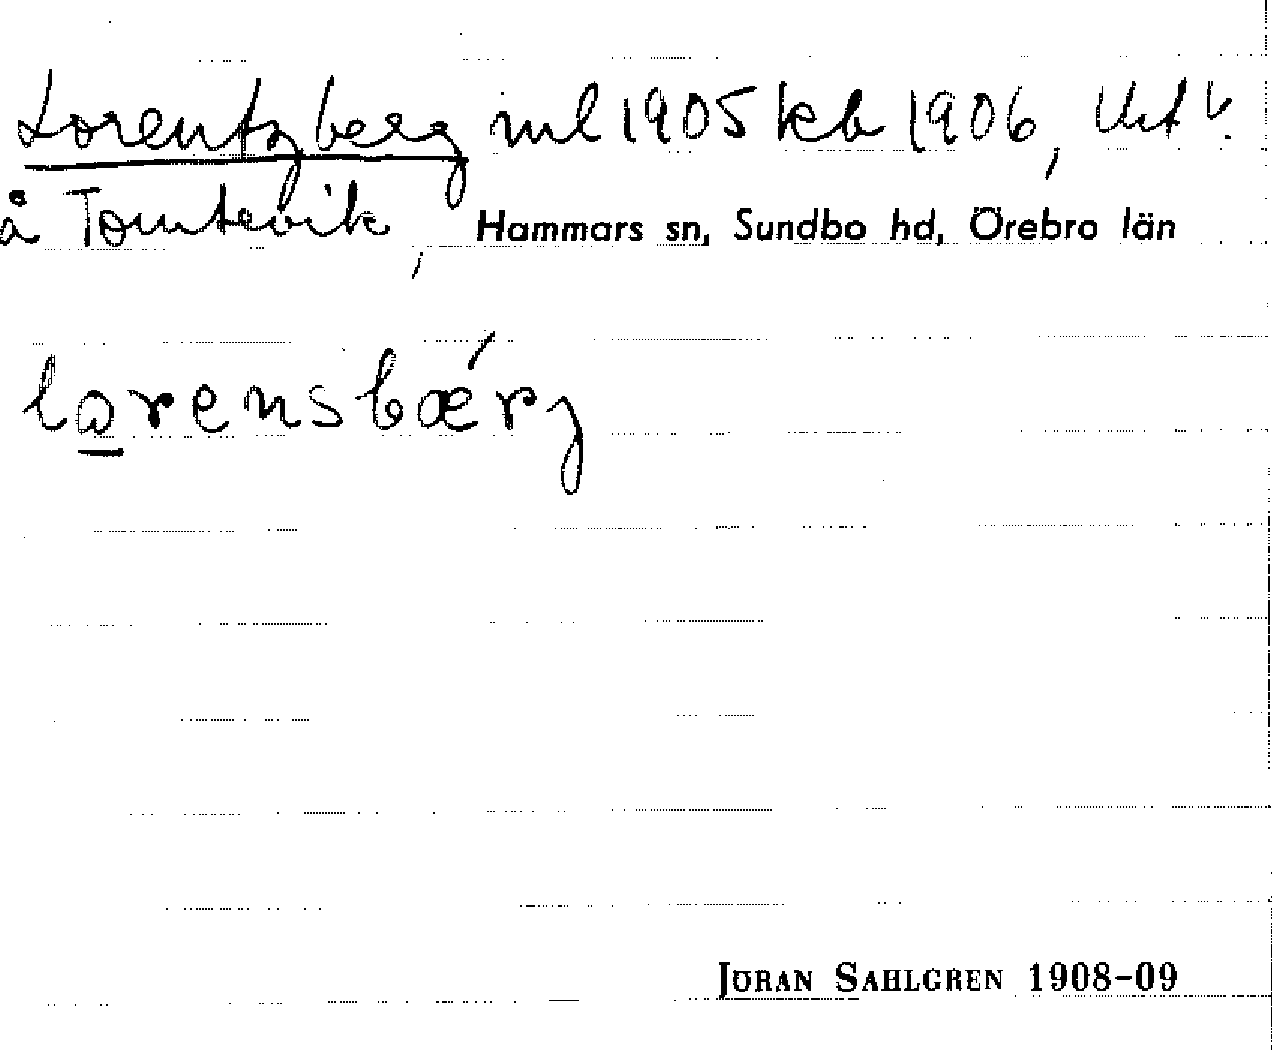 Lorentzberg ml 1905 kb 1906,
å Tomtevik, Hammars sn, Sundbo hd, Örebro län
lorensbǽrj
JÖRAN SAHLGREN 1908-09